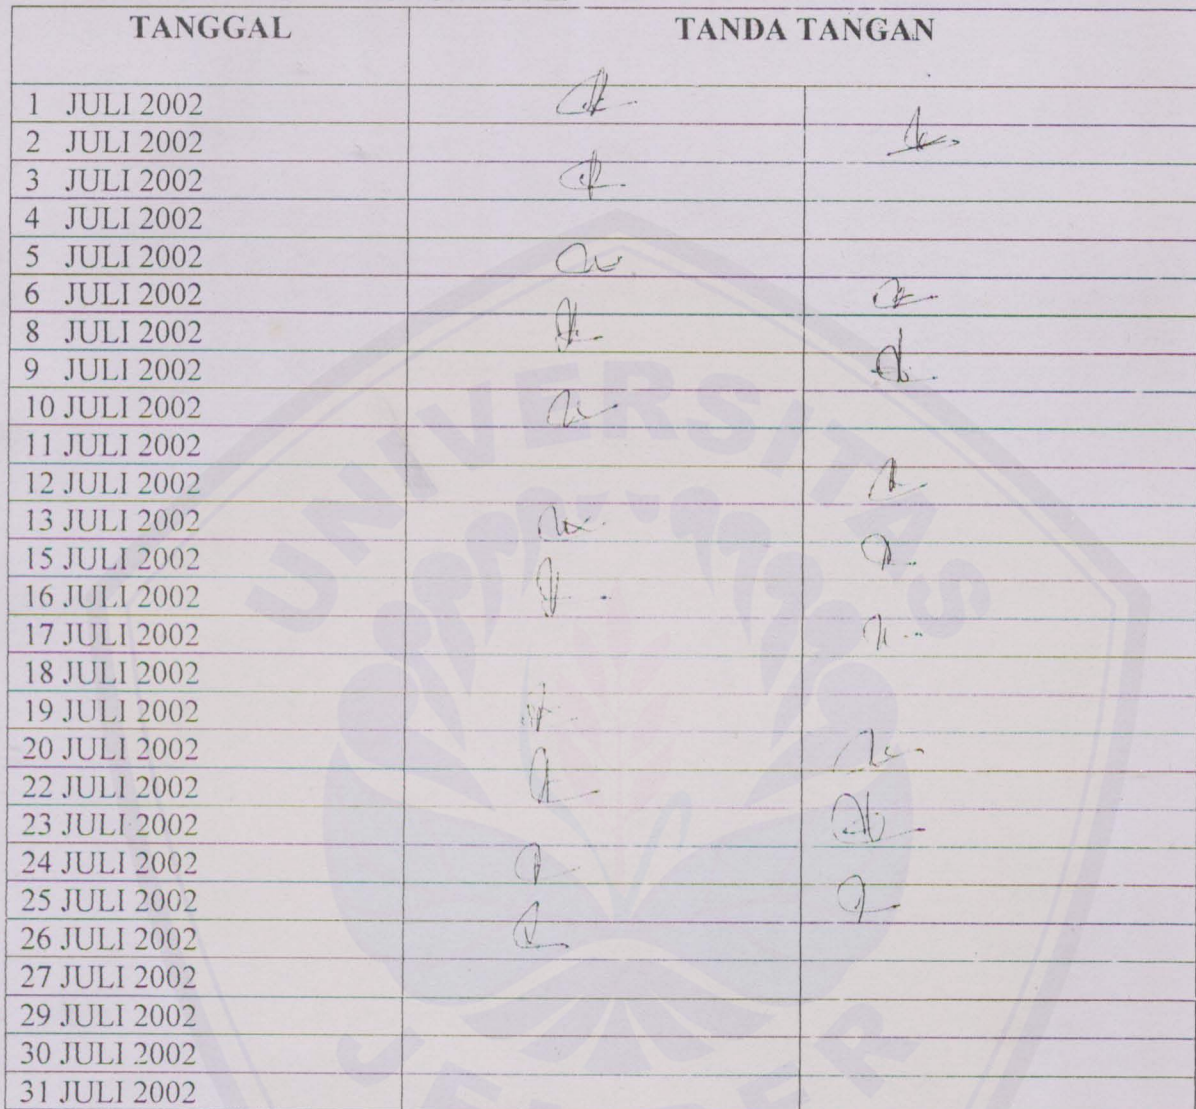 TANGGAL TANDA TANGAN
1 JULI 2002
2 JULI 2002
3 JULI 2002
4 JULI 2002
5 JULI 2002
6 JULI 2002
8 JULI 2002
9 JULI 2002
10 JULI 2002
11 JULI 2002
12 JULI 2002
13 JULI 2002
15 JULI 2002
16 JULI 2002
17 JULI 2002
18 JULI 2002
19 JULI 2002
20 JULI 2002
22 JULI 2002
23 JULI 2002
24 JULI 2002
25 JULI 2002
26 JULI 2002
27 JULI 2002
29 JULI 2002
30 JULI 2002
31 JULI 2002
UNIVERSITAS
JEMBER